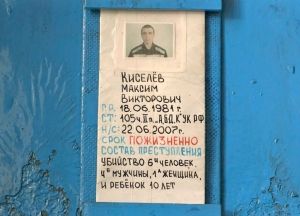 Киселёв
Максим
Викторович
Г.Р. 18.06.1981г.
СТ: 105ч.IIп."А,Б,Д,К"УК РФ
Н/С: 22.06.2007г.
СРОК ПОЖИЗНЕННО
СОСТАВ ПРЕСТУПЛЕНИЯ
УБИЙСТВО 6и ЧЕЛОВЕК,
4и МУЖЧИНЫ, 1а ЖЕНЩИНА,
И РЕБЁНОК 10 ЛЕТ